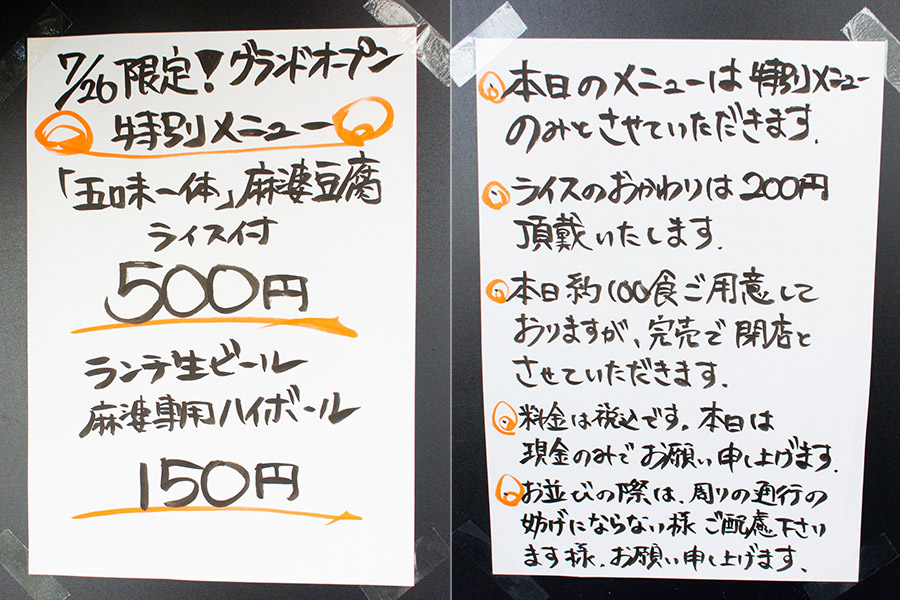 7/26限定！グランドオープン
特別メニュー
「五味一体」麻婆豆腐
ライス付
500円
ランチ生ビール
麻婆専用ハイボール
150円
本日のメニューは特別メニュー
のみとさせていただきます。
ライスのおかわりは200円
頂戴いたします。
本日約100食ご用意して
おりますが、完売で閉店と
させていただきます。
料金は税込です。本日は
現金のみでお願い申し上げます。
お並びの際は、周りの通行の
妨げにならない様ご配慮下さい
ます様、お願い申し上げます。